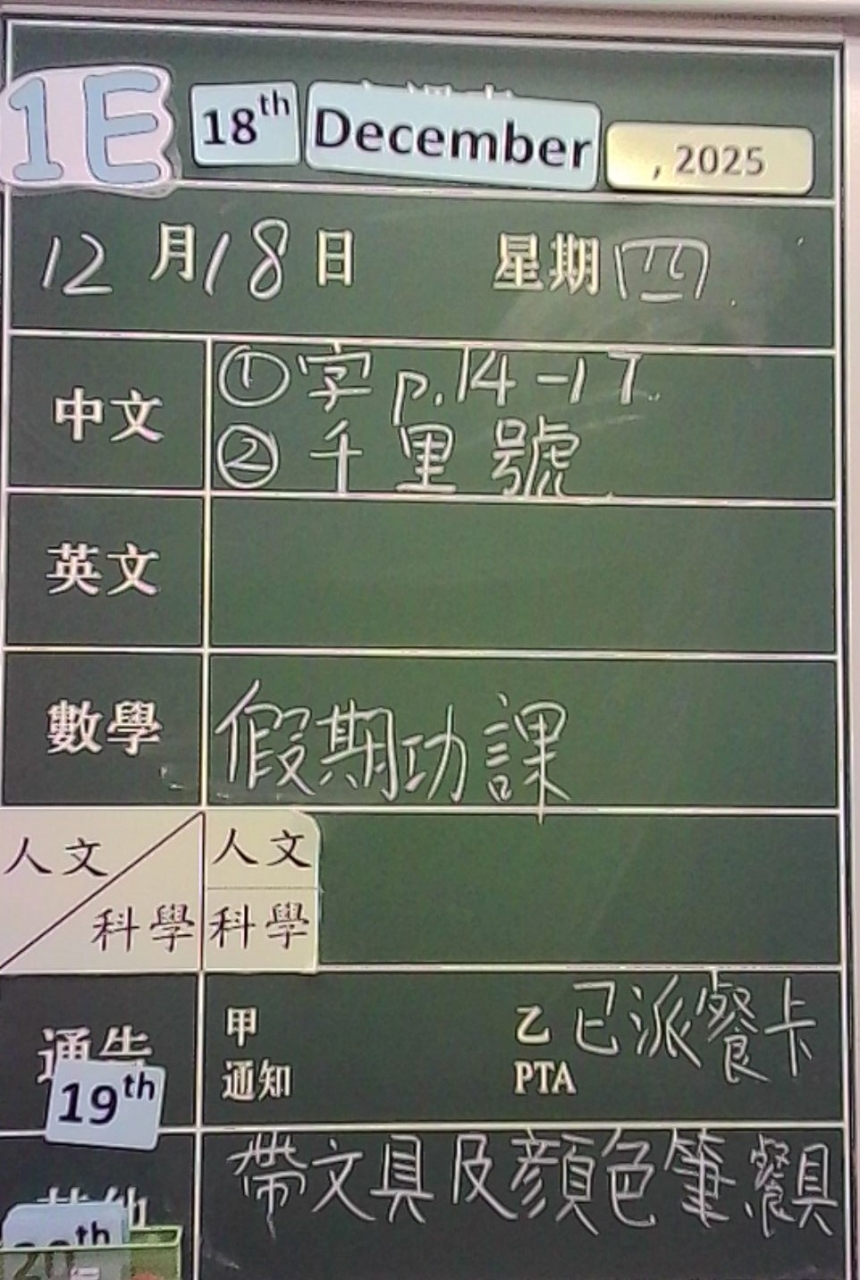 1E 18th December , 2025
12月18日 星期四
中文 ①字 p.14-17
②千里號
英文
數學 假期功課
人文 人文
科學 科學
通告 甲 乙 已派餐卡
通知 PTA
19th
帶文具及顏色筆 餐具
th
20